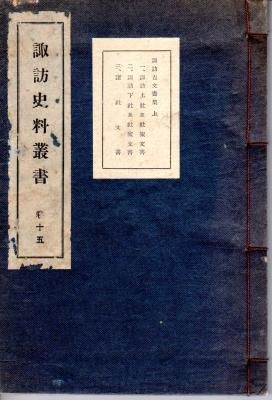 諏訪史料叢書
卷十五
諏訪古文書集上
一、諏訪上社並社家文書
二、諏訪下社並社家文書
三、諸社文書